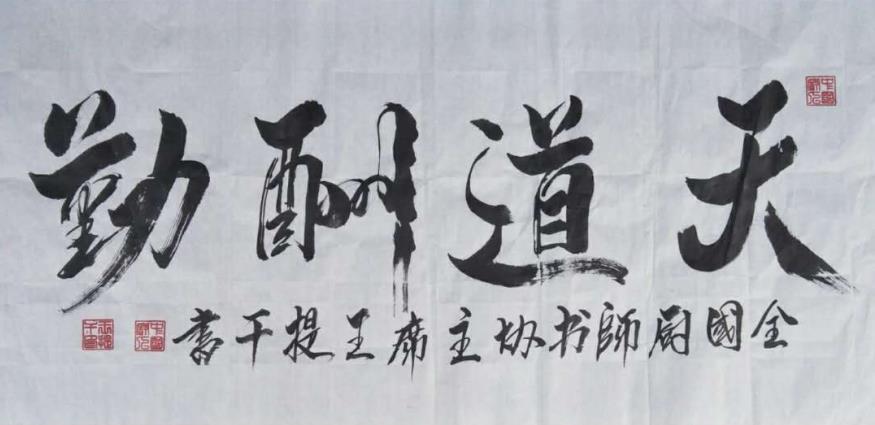 天道酬勤
全國厨師书协主席王提干書